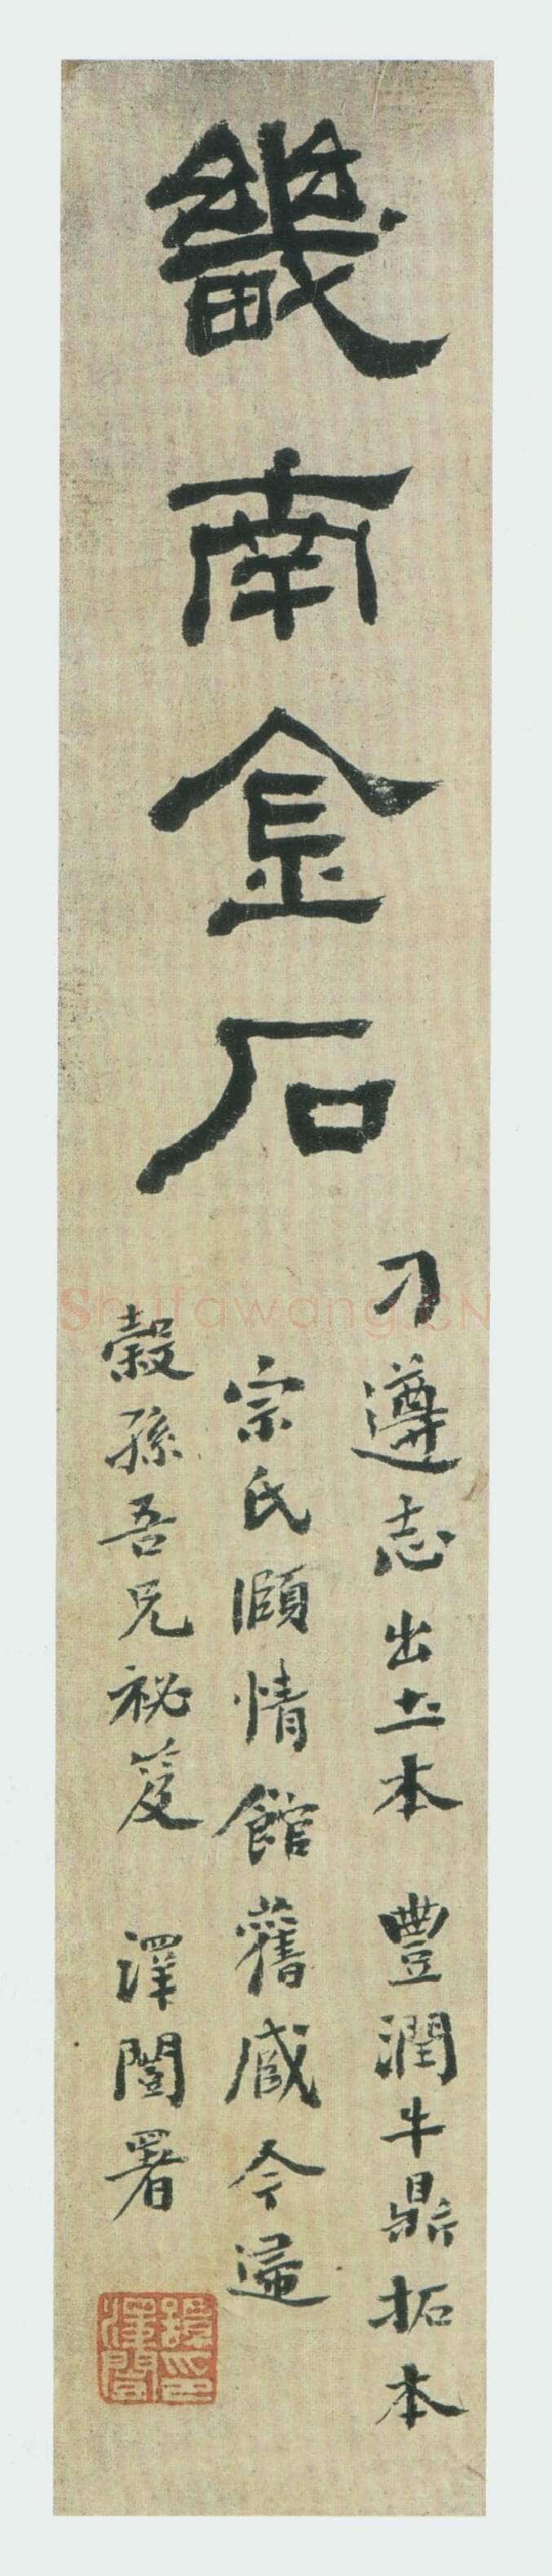 畿南金石
刁遵志出土本 豐潤牛鼎拓本
宗氏頤情館舊臧今歸
穀孫吾兄祕笈 澤闓署
譚澤闓印
Shufawang.CN